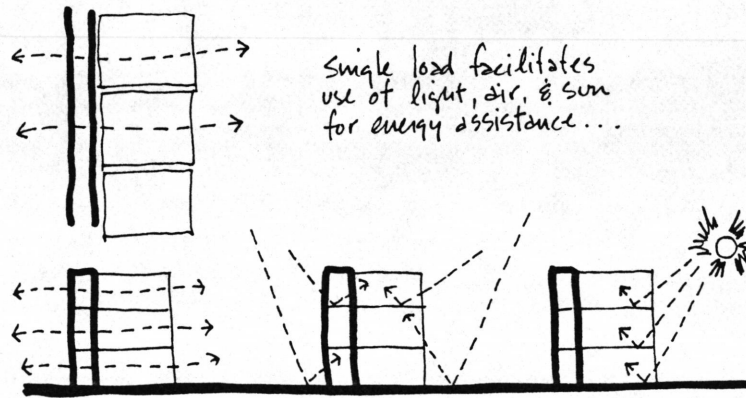 Single load facilitates
use of light, air, & sun
for energy assistance...